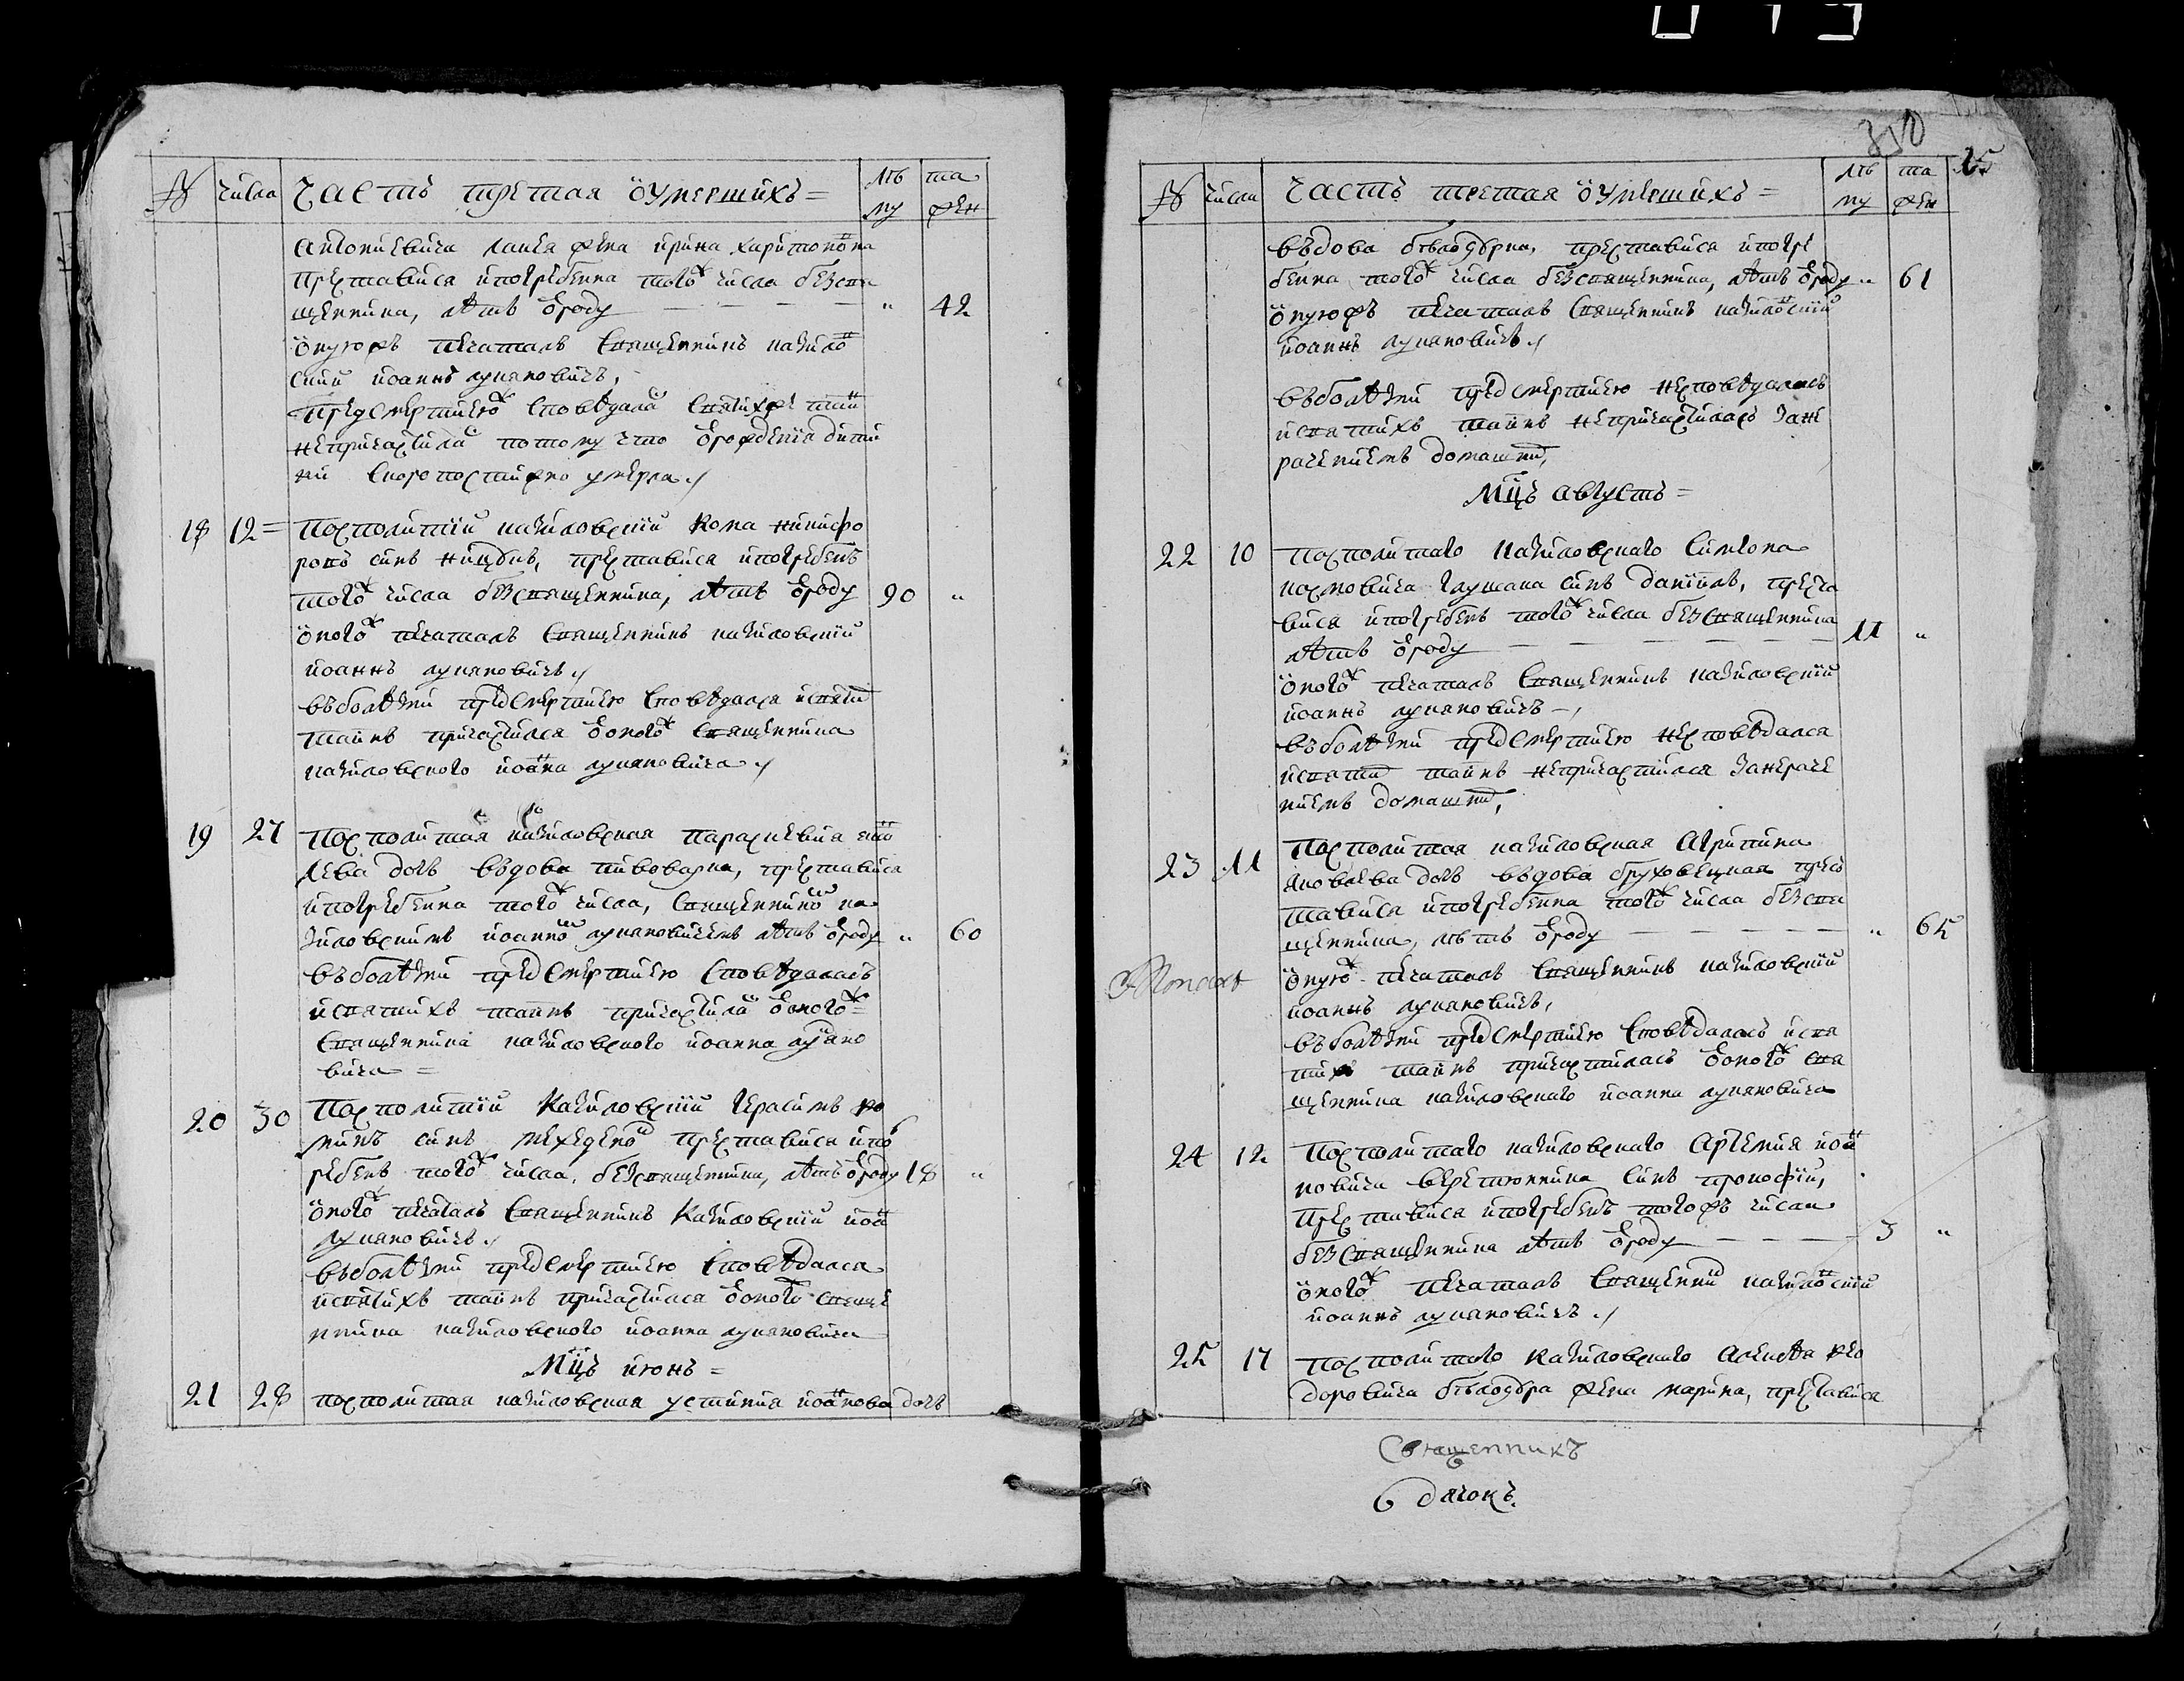 № числа Часть третая о умершихъ = лѣ та
му жен
Антониевича жена ирина харитонова
престависа и погребенна того ж числа без свя
щенника, лѣтъ ѿ роду — — — „ 42
о ную жъ печаталъ священникъ качило
ский иоаннъ лукяновичъ,
предсмертнею ж сповѣдалас святих же таин
непричастилас потому что ѿ рождения дитя
ти скоропостижно умерла ./
18 12 = посполитий качиловский никифо
ровъ синъ престависа и погребенъ
того ж числа без священника, лѣтъ ѿ роду 90 „
оного ж печаталъ священникъ качиловский
иоаннъ лукяновичъ ./
въ болѣзни предсмертнею сповѣдался и святих
таинъ причастился ѿ оного ж священника
качиловского иоанна лукяновича ./
19 27 посполитая качиловская параскевия
лева дочь въдова пивоварка, престависа
и погребенна того ж числа, священником ка
чиловскимъ иоанном лукяновичемъ лѣтъ ѿ роду „ 60
въ болѣзни предсмертнею сповѣдалась
и святихъ таинъ причастилас ѿ оного ж =
священника качиловского иоанна лукяно
вича =
20 30 посполитий качиловский герасимъ
минъ синъ престависа и пог
ребенъ того ж числа, без священника, лѣтъ ѿ роду 18 „
оного ж печаталъ священникъ качиловский иоан
лукяновичъ ./
въ болѣзни предсмертнею сповѣдался
и святихъ таинъ причастился ѿ оного ж священ
нника качиловского иоанна лукяновича
Мцъ июнь =
21 28 посполитая качиловская устиния иоанова дочь
310
25
№ числа Часть третая о умершихъ = лѣ та
му жен
въдова бѣлодѣдка, престависа и погре
бенна того ж числа без священника, лѣтъ ѿ роду „ 61
о ную жъ печаталъ священникъ качиловский
иоаннъ лукяновичъ ./
въ болѣзни предсмертнею несповѣдалась
и святихъ таинъ непричастилась за не
рачениемъ домашних,
Мцъ августъ =
22 10 посполитаго качиловскаго симеона
космовича синъ даниилъ, преста
виса и погребенъ того ж числа без священника
лѣтъ ѿ роду — — — — — 11 „
оного ж печаталъ священникъ качиловский
иоаннъ лукяновичъ —,
въ болѣзни предсмертнею несповѣдался
и святих таинъ непричастился за нераче
ниемъ домашних,
23 11 посполитая качиловская агрипина
яковлева дочь въдова бруховецкая прес
тависа и погребенна того ж числа без свя
щенника, лѣтъ ѿ роду — — — — — „ 65
о ную ж печаталъ священникъ качиловский
иоаннъ лукяновичъ,
въ болѣзни предсмертнею сповѣдалась и свя
тихъ таинъ причастилась ѿ оного ж свя
щенника качиловскаго иоанна лукяновича
24 12 посполитаго качиловскаго артемия иоан
новича веретюнника синъ прокофий,
престависа и погребенъ того жъ числа
без священника лѣтъ ѿ роду — — — 3 „
оного ж печаталъ священник качиловский
иоаннъ лукяновичъ ./
25 17 посполитаго качиловскаго алексѣя фео
доровича жена марина, престависа
Священникъ
дячокъ.